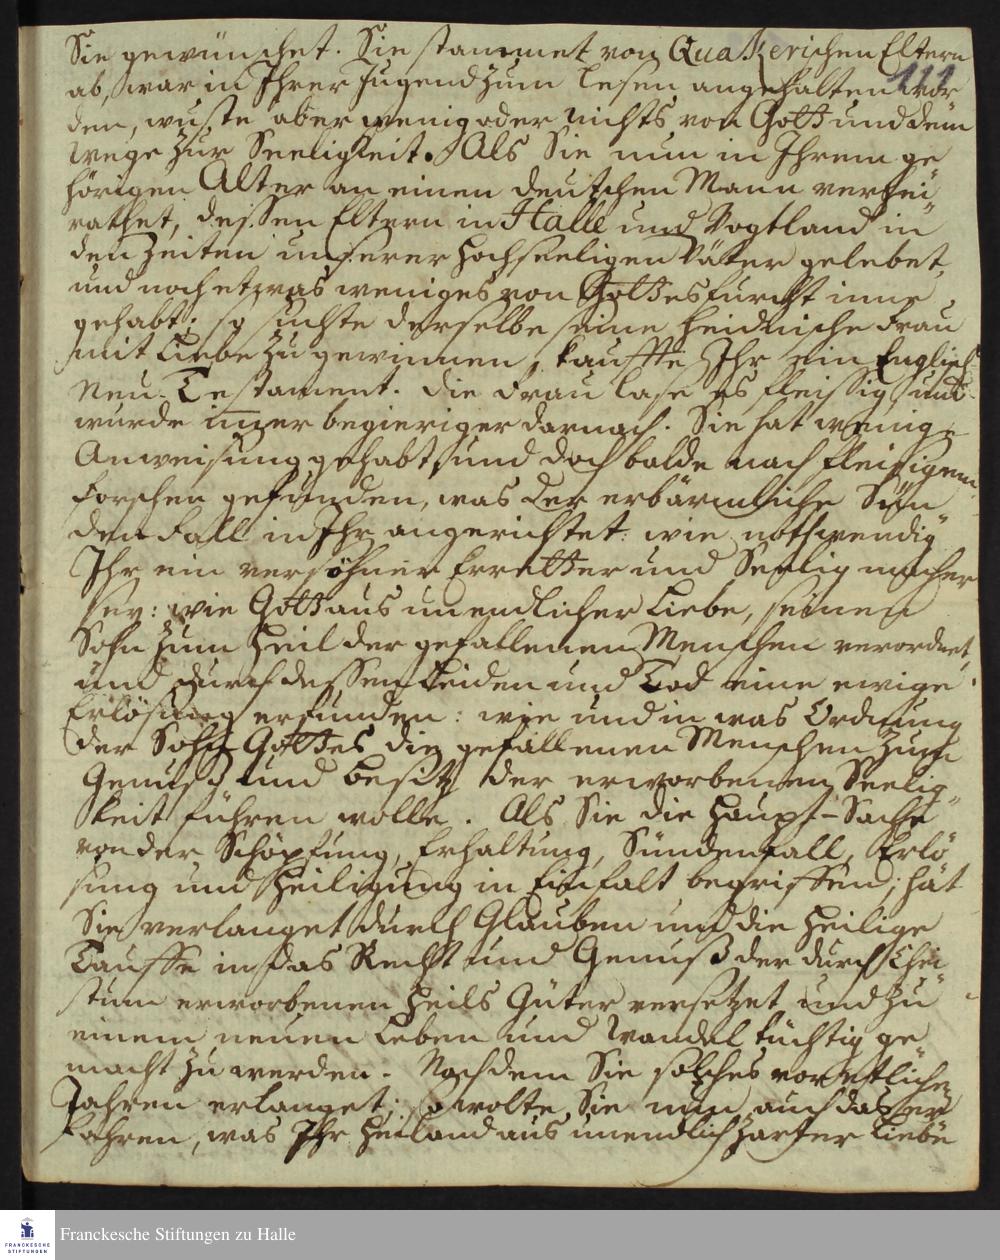 Sie gewünschet. Sie stammet von Quakerischen Eltern
111
ab, war in Ihrer Jugend zum lesen angehalten wor
den, wuste aber wenig oder nichts von Gott und dem
Wege zur Seeligkeit. Als Sie nun in Ihrem ge
hörigen Alter an einen deutschen Mann verhei
rathet, dessen Eltern in Halle und Vogtland in
den Zeiten unserer Hochseeligen Väter gelebet,
und noch etwas weniges von Gottesfurcht inne
gehabt; so suchte derselbe seine heidnische Frau
mit Liebe zu gewinnen, kauffte Ihr ein Englisch
Neu Testament. die Frau lase es fleissig und
wurde immer begieriger darnach. Sie hat wenig
Anweisung gehabt, und doch balde nach fleissigem
forschen gefunden, was der erbärmliche Sün
den Fall in Ihr angerichtet: wie nothwendig
Ihr ein versöhner Erretter und Seelig macher
sey: wie Gott aus unendlicher Liebe, seinen
Sohn zum Heil der gefallenen Menschen verordnet,
und durch dessen Leiden und Tod eine ewige
Erlösung erfunden: wie und in was Ordnung
der Sohn Gottes die gefallenen Menschen zum
Genuss und Besitz der erworbenen Seelig
keit führen wolle. Als Sie die Haupt-Sache
von der Schöpfung, Erhaltung, Sündenfall, Erlö
sung und Heiligung in Einfalt begriffen; hat
Sie verlanget durch Glauben und die Heilige
Tauffe in das Recht und Genuß der durch Chri
stum erworbenen Heils Güter versetzet und zu
einem neuen Leben und Wandel tüchtig ge
macht zu werden. Nachdem Sie solches vor etlichen
Jahren erlanget; so wolte Sie nun auch das er
fahren, was Ihr Heiland aus unendlich zarter Liebe
FRANCKESCHE
STIFTUNGEN
Franckesche Stiftungen zu Halle